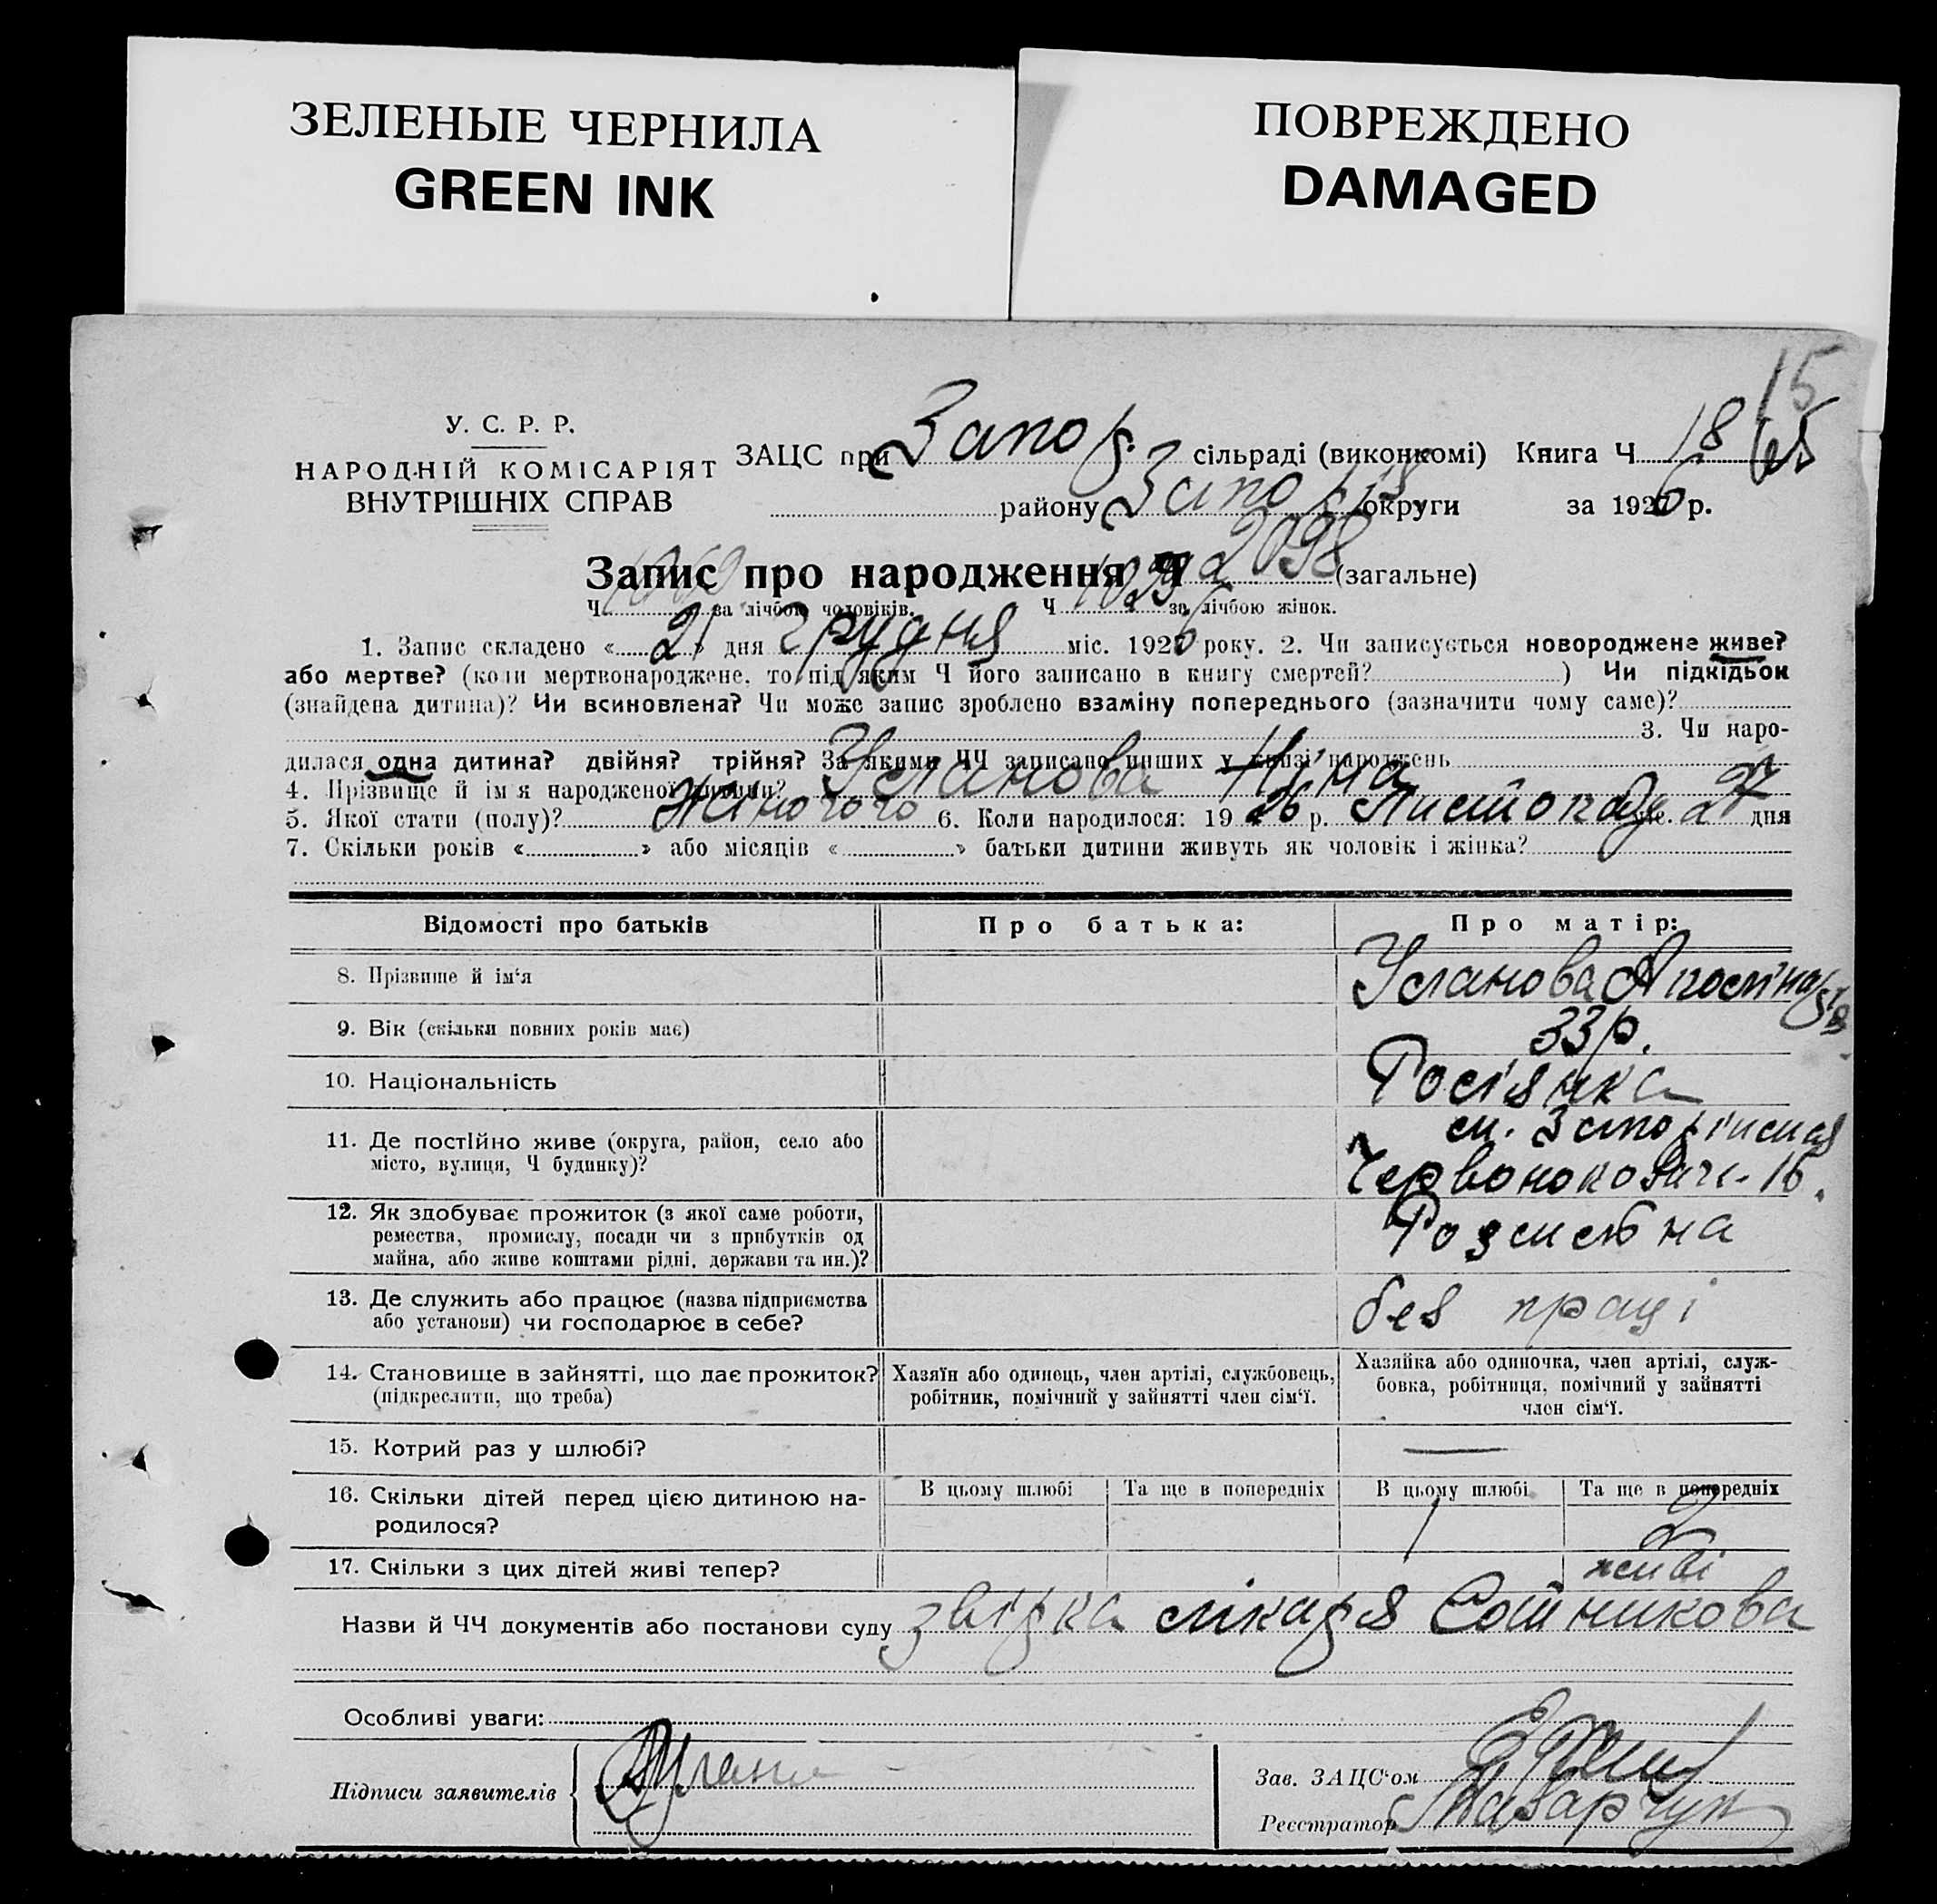 ЗЕЛЕНЫЕ ЧЕРНИЛА
GREEN INK
ПОВРЕЖДЕНО
DAMAGED
15
У. С. Р. Р.
НАРОДНІЙ КОМІСАРІЯТ
ВНУТРІШНІХ СПРАВ
ЗАЦС при Запор. сільраді (виконкомі) Книга Ч 18
району Запоріз. округи за 1926 р.
Запис про народження Ч 2098 (загальне)
Ч за лічбою чоловіків. Ч 1029 за лічбою жінок.
1. Запис складено « 21 » дня Грудня міс. 1926 року. 2. Чи записується новороджене живе?
або мертве? (коли мертвонароджене, то під яким Ч його записано в книгу смертей? ) Чи підкідьок
(знайдена дитина)? Чи всиновлена? Чи може запис зроблено взаміну попереднього (зазначити чому саме)?
3. Чи наро-
дилася одна дитина? двійня? трійня? За якими ЧЧ записано інших у книзі народжень
4. Прізвище й ім'я народженої дитини? Уланова Ніна
5. Якої стати (полу)? Жіночого 6. Коли народилося: 1926 р. Листопаду міс. 27 дня
7. Скільки років « » або місяців « » батьки дитини живуть як чоловік і жінка?
Відомості про батьків Про батька: Про матір:
8. Прізвище й ім'я Уланова
9. Вік (скільки повних років має) 33 р.
10. Національність Росіянка
11. Де постійно живе (округа, район, село або
місто, вулиця, Ч будинку)?
м. Запоріжжя
16.
12. Як здобуває прожиток (з якої саме роботи,
ремества, промислу, посади чи з прибутків од
майна, або живе коштами рідні, держави та ин.)?
13. Де служить або працює (назва підприємства
або установи) чи господарює в себе?
без праці
14. Становище в зайнятті, що дає прожиток?
(підкреслити, що треба)
Хазяїн або одинець, член артілі, службовець,
робітник, помічний у зайнятті член сім'ї.
Хазяйка або одиночка, член артілі, служ-
бовка, робітниця, помічний у зайнятті
член сім'ї.
15. Котрий раз у шлюбі? —
16. Скільки дітей перед цією дитиною на-
родилося?
В цьому шлюбі Та ще в попередніх В цьому шлюбі Та ще в попередніх
2
17. Скільки з цих дітей живі тепер? живі
Назви й ЧЧ документів або постанови суду звірка лікаря Сотникова
Особливі уваги:
Підписи заявителів
Зав. ЗАЦС'ом
Реєстратор